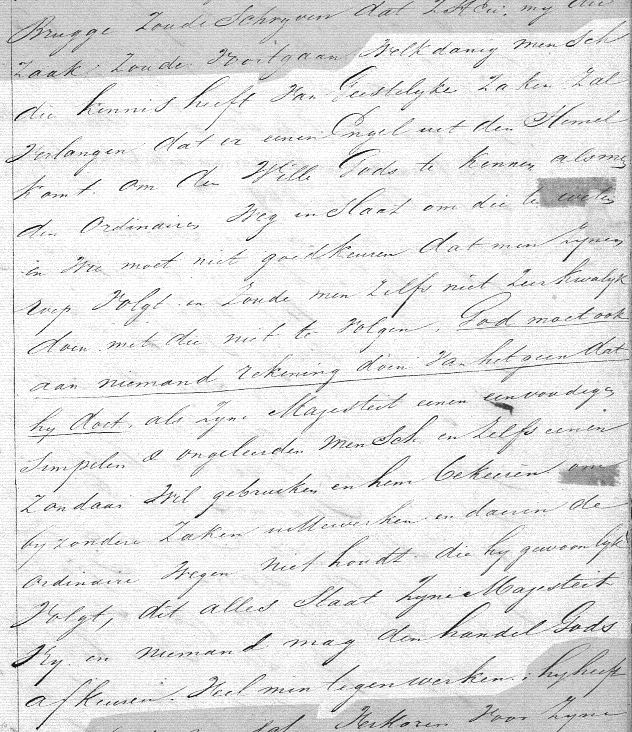 Brugge Zoude Schryven dat Z.H.Ew. my die
Zaak Zoude Voortgaan Welkdanig mensch
die kennis heeft Van Geestelyke Zaken Zal
Verlangen dat er eenen Engel uit den Hemel
komt om den Wille Gods te kennen alsmen
den Ordinairen Weg en Slaat om die te weten
en Wie moet niet goedkeuren dat men Zynen
roep Volgt en Zoude men Zelfs niet Zeer kwalyk
doen met die niet te Volgen. God moet ook
aan niemand rekening doen Van het geen dat
hy doet, als Zyne Majesteit eenen eenvoudigen
Simpelen & ongeleerden mensch en Zelfs eenen
Zondaar Wil gebruiken en hem bekeeren om
byzondere Zaken uittewerken en daerin de
ordinaire Wegen niet houdt die hy gewoonlyk
Volgt, dit alles Staat Zyne Majesteit
Vry en niemand mag den handel Gods
afkeuren. Veel min tegenwerken; hy heeft
Verkoren Voor Zyne